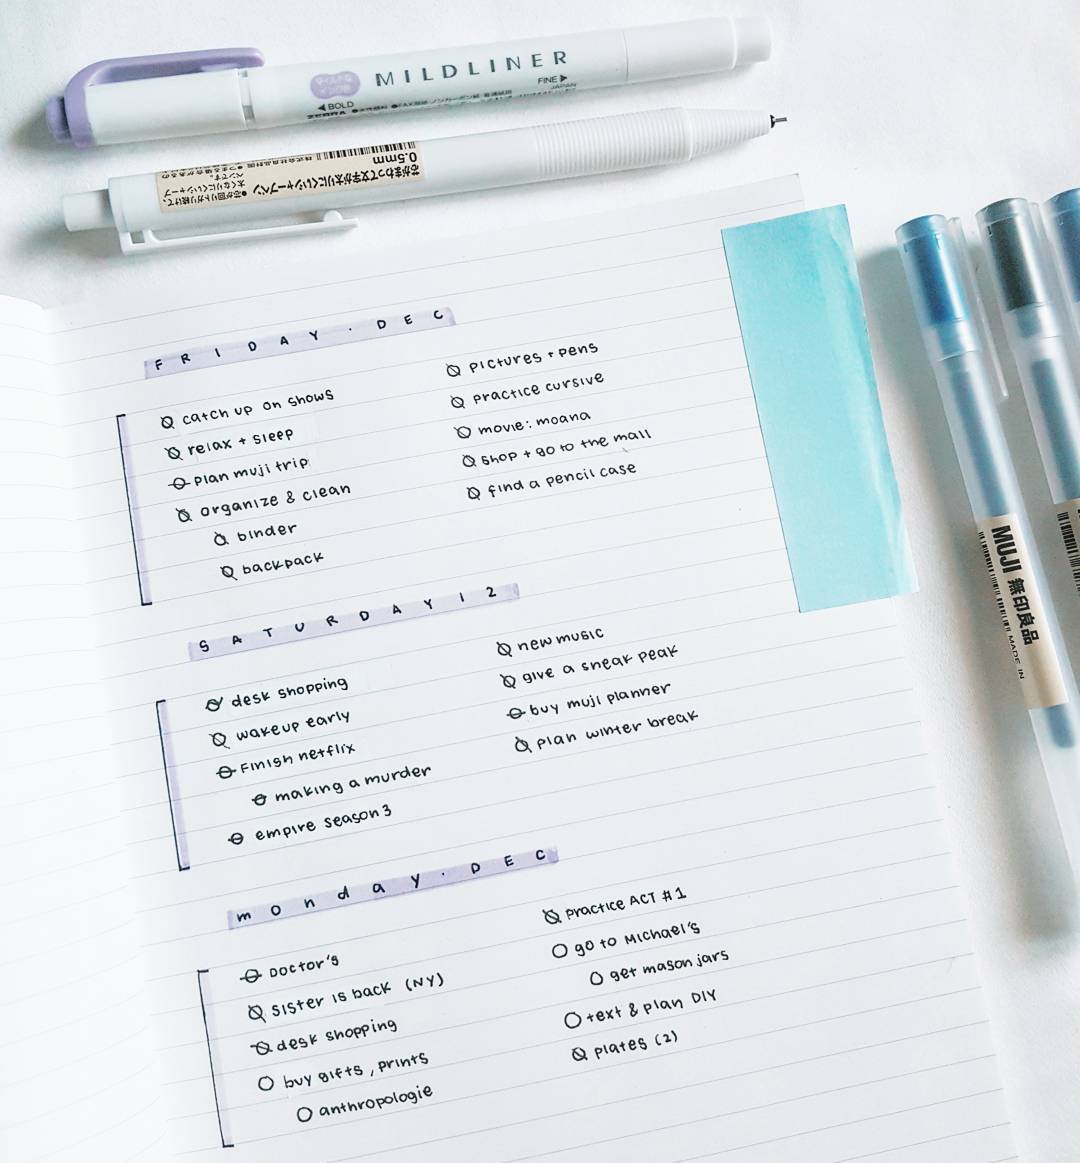 マイルドな
インク色
MILDLINER
◀BOLD
FINE▶
ZEBRA
JAPAN
芯がまわって文字が太りにくいシャープペン
0.5mm
●芯が回りトガリ続けて、
太くなりにくいシャープ
ペンです。
MUJI 無印良品
MADE IN
FRIDAY · DEC
catch up on shows
relax + sleep
plan muji trip
organize & clean
binder
backpack
pictures + pens
practice cursive
movie: moana
shop + go to the mall
find a pencil case
SATURDAY 12
desk shopping
wakeup early
Finish netflix
making a murder
empire season 3
new music
give a sneak peak
buy muji planner
plan winter break
monday · DEC
Doctor's
sister is back (NY)
desk shopping
buy gifts, prints
anthropologie
practice ACT #1
go to Michael's
get mason jars
text & plan DIY
plates (2)